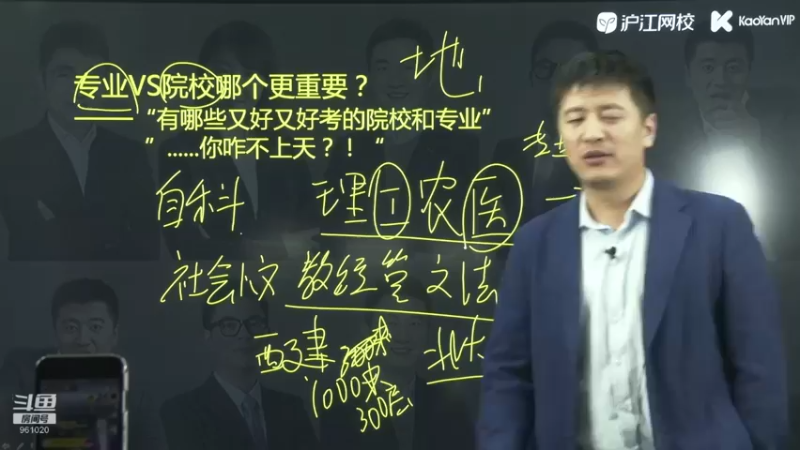 沪江网校 KaoYanVIP
地
专业VS院校哪个更重要？
“有哪些又好又好考的院校和专业”
”……你咋不上天？！“
自科 理工农医
社会人文 教经管文法
西建 北大
1000来
300层
斗鱼
房间号
961020